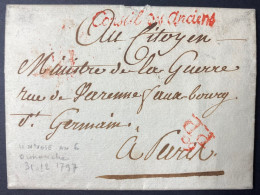 Conseil des Anciens
Au Citoyen
Ministre de la Guerre
rue de Varenne faux bourg
St. Germain
à Paris
an 6
31.12 1797